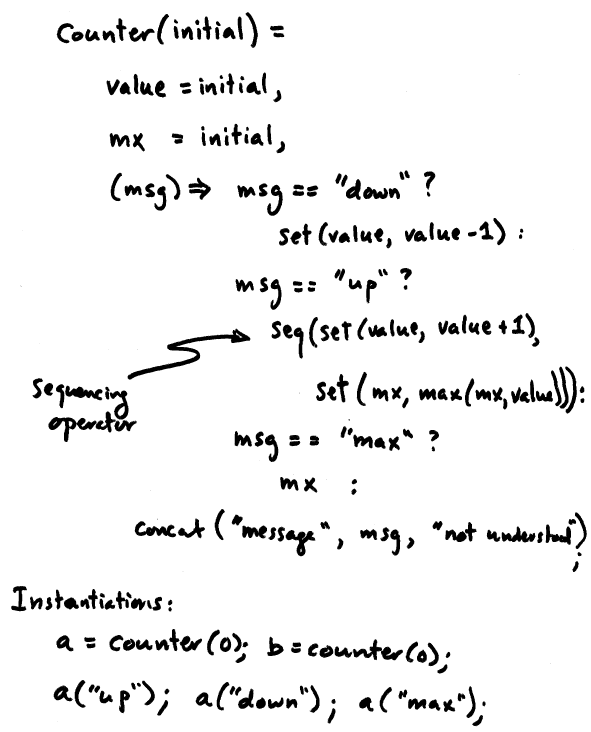 Counter(initial) =
value = initial,
mx = initial,
(msg) ⇒ msg == "down" ?
set(value, value-1) :
msg == "up" ?
seq(set(value, value+1),
set(mx, max(mx,value))):
sequencing
operator
msg == "max" ?
mx :
concat("message", msg, "not understood")
;
Instantiations:
a = counter(0); b = counter(0);
a("up"); a("down"); a("max");